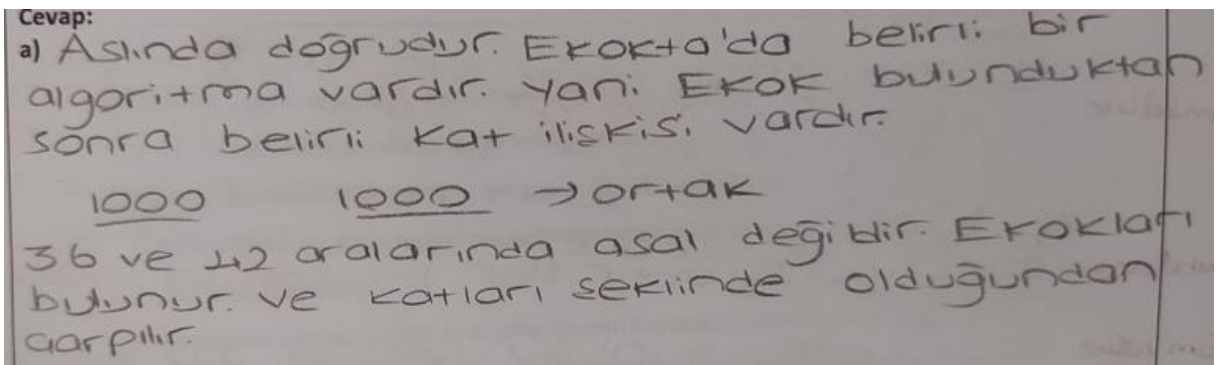 Cevap:
a) Aslında doğrudur. Ekokta'da belirli bir
algoritma vardır. Yani Ekok bulunduktan
sonra belirli kat ilişkisi vardır.
1000 1000 → ortak
36 ve 42 aralarında asal değildir. Ekokları
bulunur. ve katları şeklinde olduğundan
çarpılır.